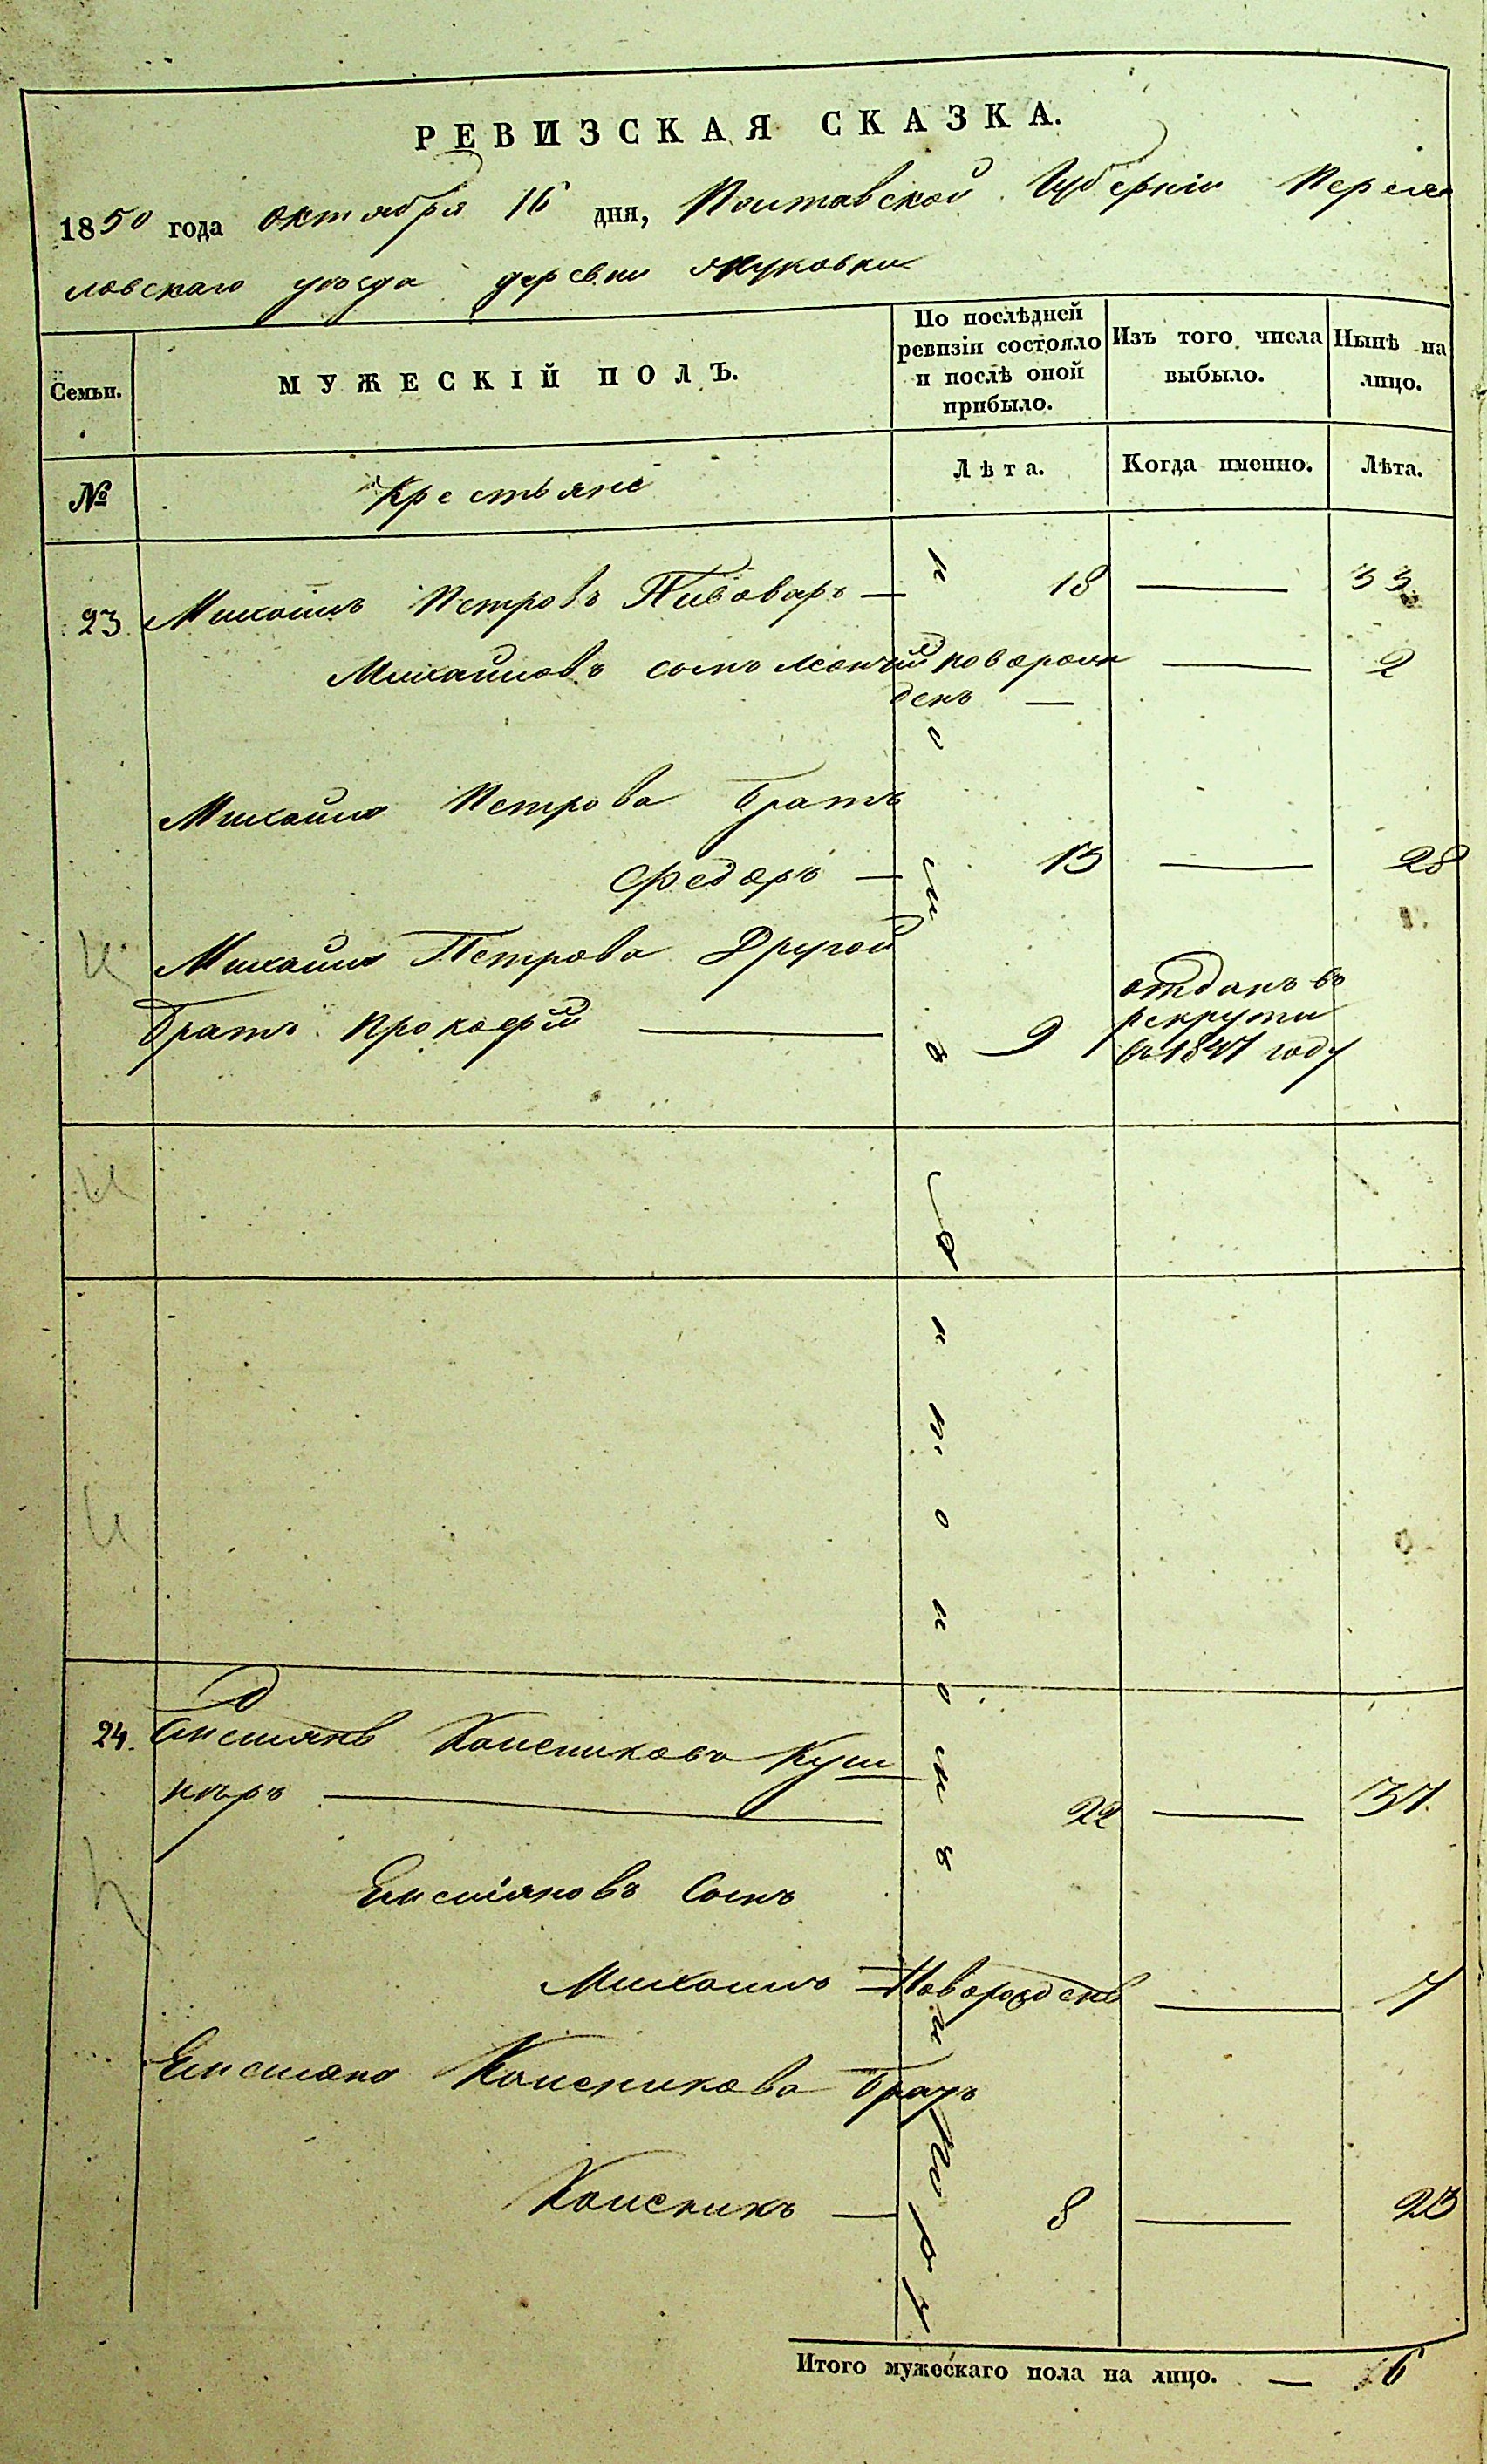 РЕВИЗСКАЯ СКАЗКА.
1850 года октября 16 дня, Полтавской Губернiи Перея
ловскаго уѣзда деревни
Семьи.
МУЖЕСКІЙ ПОЛЪ.
По послѣдней ревизіи состояло и послѣ оной прибыло.
Изъ того числа выбыло.
Нынѣ на лицо.
№
Крестьяне
Лѣта.
Когда именно.
Лѣта.
23. Михайлъ Петровъ Пивоваръ — 18 — 33
Михайловъ сынъ новорож — 2
денъ —
Михайла Петрова братъ
Федоръ — 13 — 28
Михайла Петрова Другой
братъ Прокофiй — 9 отданъ въ
рекруты
въ 1847 году
24. Емелiянъ Колениковъ Куш
нѣръ — 22 — 37.
Емелiяновъ Сынъ
Михайло — Новорожденъ — 7
Емелiяна Коленикова братъ
Коленикъ — 8 — 23
Итого мужескаго пола на лицо. — 6